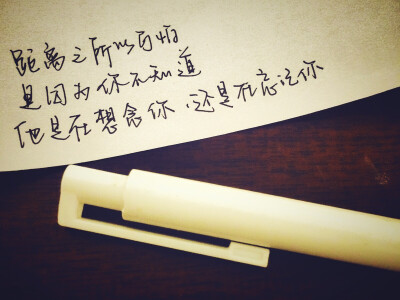 距离之所以可怕
是因为你不知道
他是在想念你,还是在忘记你